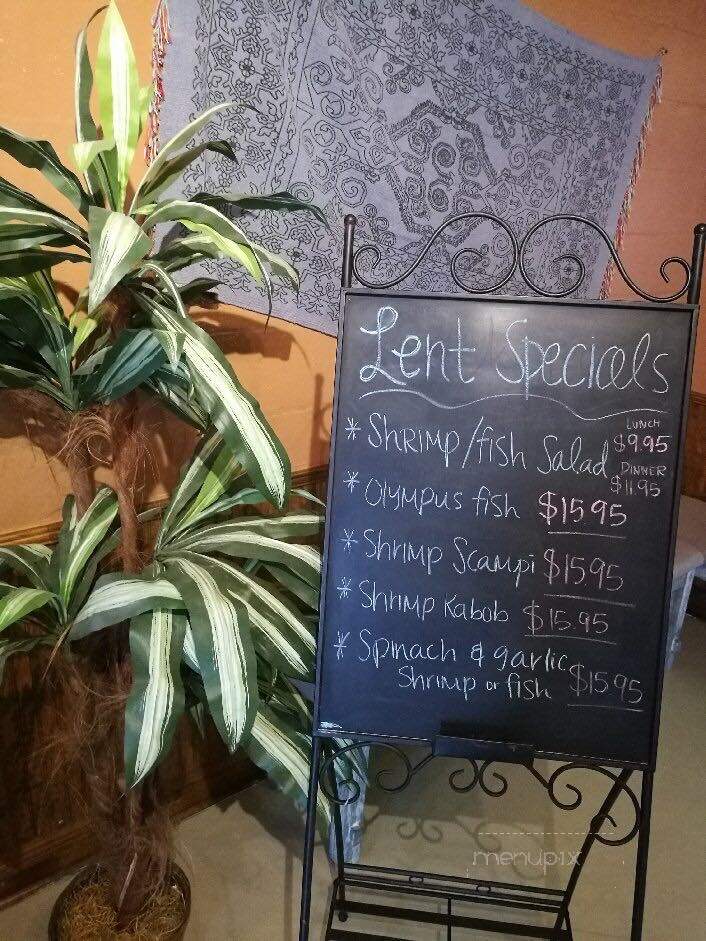 Lent Specials
* Shrimp/fish Salad LUNCH $9.95
DINNER $11.95
* Olympus fish $15.95
* Shrimp Scampi $15.95
* Shrimp Kabob $15.95
* Spinach & garlic
Shrimp or fish $15.95
menupix